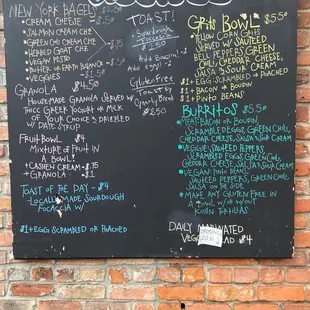 NEW YORK BAGEL
• CREAM CHEESE
• SALMON CREAM CHZ
• GREEN CHILE CREAM CHZ
• HERBED GOAT CHZ
• VEGAN PESTO $1.50
• VEGGIES $1.50
GRANOLA $4
HOUSEMADE GRANOLA SERVED W/
THICC GREEK YOGURT OR MILK
OF YOUR CHOICE & DRIZZLED
W/ DATE SYRUP
FRUIT BOWL $4
MIXTURE OF FRUIT IN
A BOWL!
+ CASHEW CREAM $.75
+ GRANOLA $1
TOAST OF THE DAY - $4
LOCALLY MADE SOURDOUGH
FOCACCIA W/
$1 + EGG SCRAMBLED OR POACHED
TOAST!
SOURDOUGH
$2.50
GLUTEN FREE
TOAST BY
BREAD
$2.50
GRITS BOWL $5.50
YELLOW CORN GRITS
SERVED W/ SAUTEED
BELL PEPPERS, GREEN
CHILI, CHEDDAR CHEESE,
SALSA & SOUR CREAM
$1 + EGG - SCRAMBLED OR POACHED
$1 + BACON
$1 + PINTO BEANS
BURRITOS $5.50
• MEAT: BACON OR BOUDIN,
SCRAMBLED EGGS, GREEN CHILI,
CHEDDAR CHEESE, SALSA, SOUR CREAM
• VEGGIE: SAUTEED PEPPERS,
SCRAMBLED EGG, GREEN CHILI,
CHEDDAR CHEESE, SALSA, SOUR CREAM
• VEGAN: PINTO BEANS,
SAUTEED PEPPERS, GREEN CHILI,
SALSA ON THE SIDE
• MAKE ANY GLUTEN FREE IN
A BOWL W/ OR W/OUT
CORN TORTILLAS
DAILY MARINATED
$4